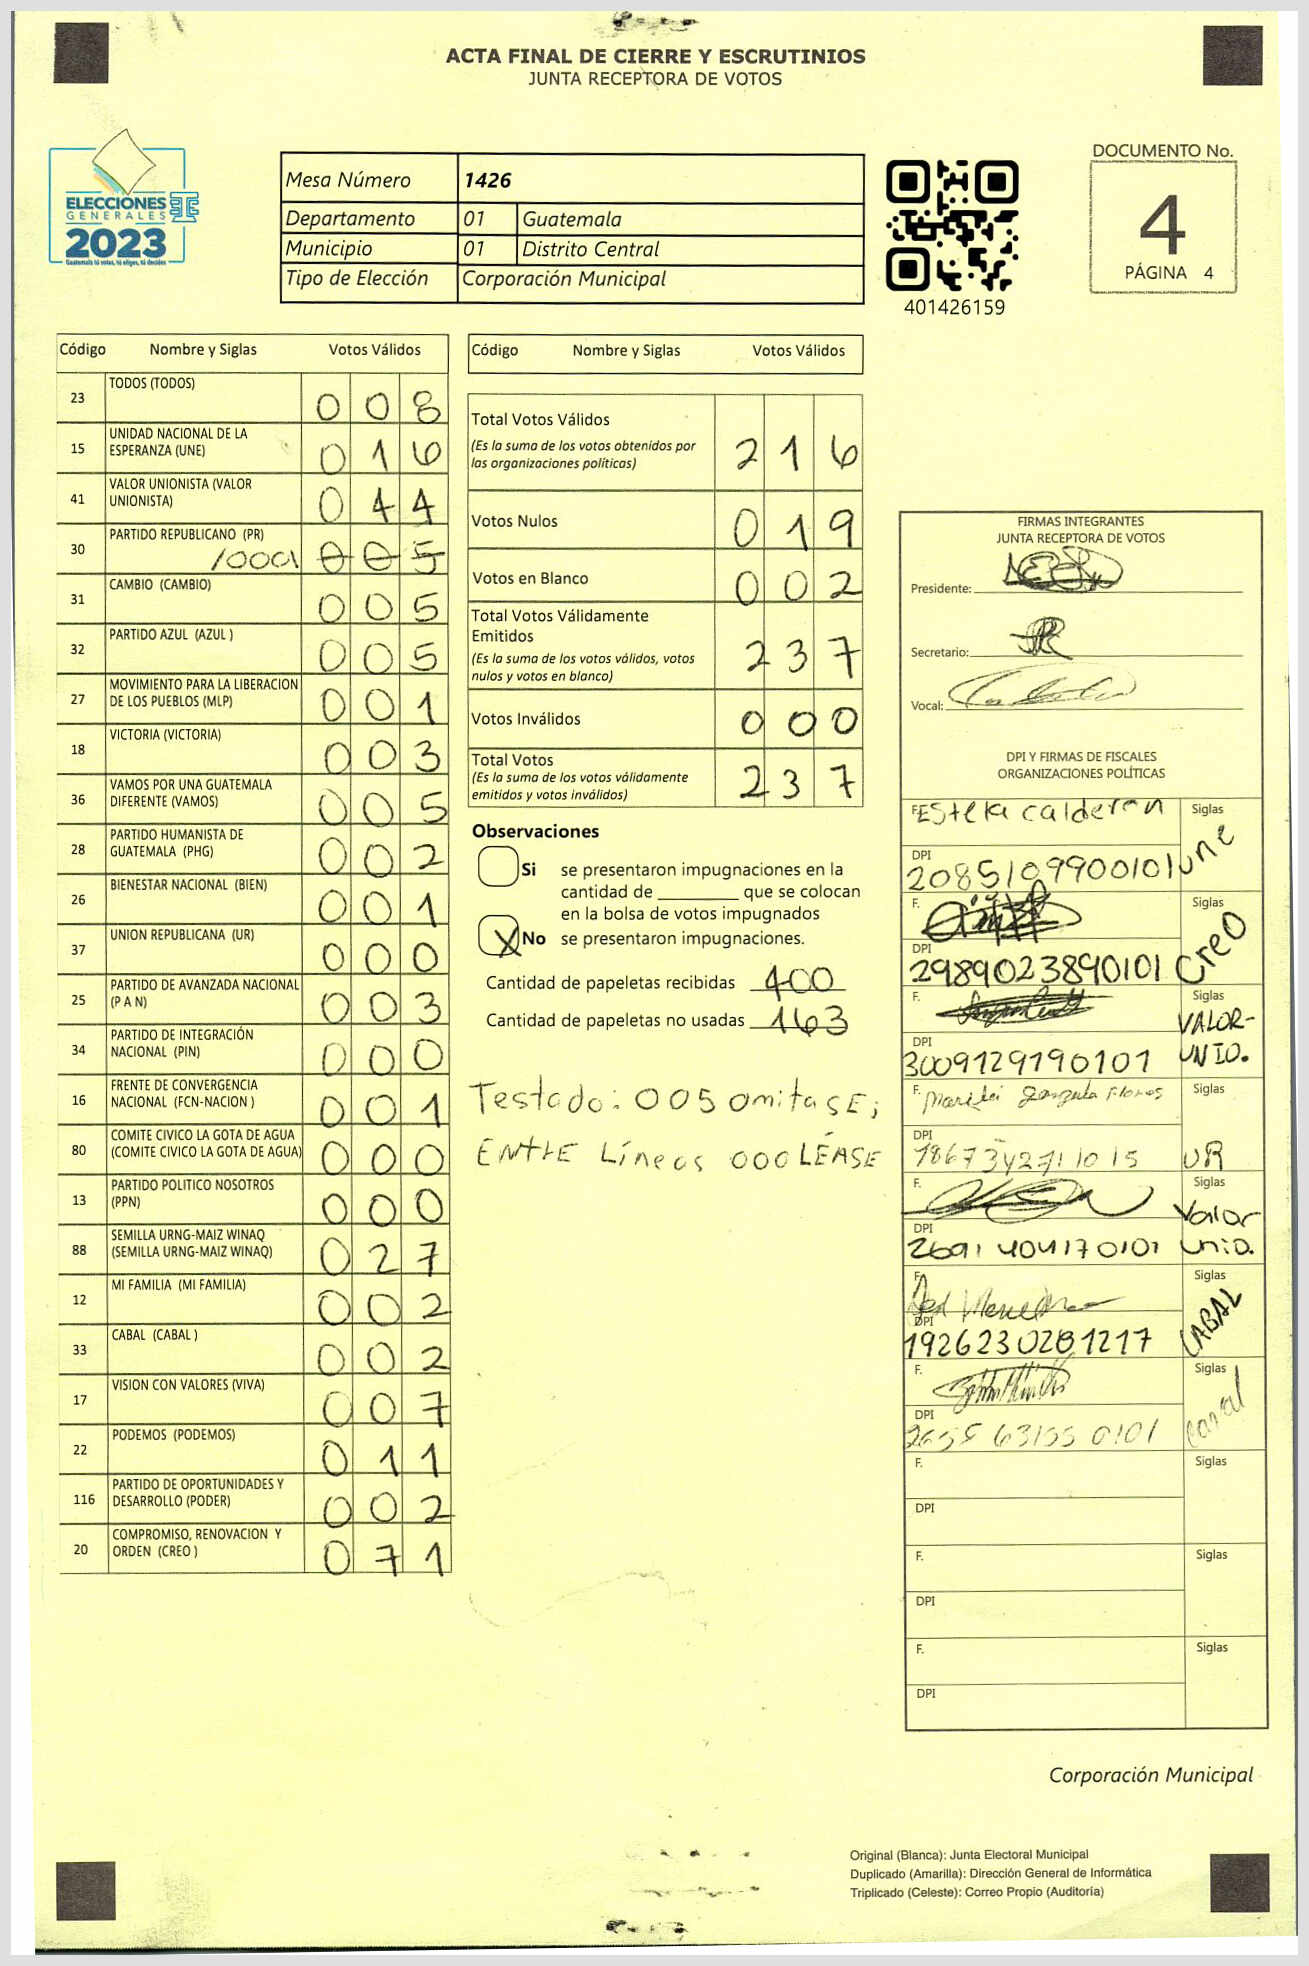 ACTA FINAL DE CIERRE Y ESCRUTINIOS
JUNTA RECEPTORA DE VOTOS
ELECCIONES
GENERALES
2023
Guatemala tú votas, tú eliges, tú decides
Mesa Número 1426
Departamento 01 Guatemala
Municipio 01 Distrito Central
Tipo de Elección Corporación Municipal
401426159
DOCUMENTO No.
4
PÁGINA 4
Código Nombre y Siglas Votos Válidos
23 TODOS (TODOS) 0 0 8
15 UNIDAD NACIONAL DE LA
ESPERANZA (UNE) 0 1 6
41 VALOR UNIONISTA (VALOR
UNIONISTA) 0 4 4
30 PARTIDO REPUBLICANO (PR)
/000\ 0 0 5
31 CAMBIO (CAMBIO) 0 0 5
32 PARTIDO AZUL (AZUL ) 0 0 5
27 MOVIMIENTO PARA LA LIBERACION
DE LOS PUEBLOS (MLP) 0 0 1
18 VICTORIA (VICTORIA) 0 0 3
36 VAMOS POR UNA GUATEMALA
DIFERENTE (VAMOS) 0 0 5
28 PARTIDO HUMANISTA DE
GUATEMALA (PHG) 0 0 2
26 BIENESTAR NACIONAL (BIEN) 0 0 1
37 UNION REPUBLICANA (UR) 0 0 0
25 PARTIDO DE AVANZADA NACIONAL
(P A N) 0 0 3
34 PARTIDO DE INTEGRACIÓN
NACIONAL (PIN) 0 0 0
16 FRENTE DE CONVERGENCIA
NACIONAL (FCN-NACION ) 0 0 1
80 COMITE CIVICO LA GOTA DE AGUA
(COMITE CIVICO LA GOTA DE AGUA) 0 0 0
13 PARTIDO POLITICO NOSOTROS
(PPN) 0 0 0
88 SEMILLA URNG-MAIZ WINAQ
(SEMILLA URNG-MAIZ WINAQ) 0 2 7
12 MI FAMILIA (MI FAMILIA) 0 0 2
33 CABAL (CABAL ) 0 0 2
17 VISION CON VALORES (VIVA) 0 0 7
22 PODEMOS (PODEMOS) 0 1 1
116 PARTIDO DE OPORTUNIDADES Y
DESARROLLO (PODER) 0 0 2
20 COMPROMISO, RENOVACION Y
ORDEN (CREO ) 0 7 1
Código Nombre y Siglas Votos Válidos
Total Votos Válidos
(Es la suma de los votos obtenidos por
las organizaciones políticas) 2 1 6
Votos Nulos 0 1 9
Votos en Blanco 0 0 2
Total Votos Válidamente
Emitidos
(Es la suma de los votos válidos, votos
nulos y votos en blanco) 2 3 7
Votos Inválidos 0 0 0
Total Votos
(Es la suma de los votos válidamente
emitidos y votos inválidos) 2 3 7
Observaciones
Si se presentaron impugnaciones en la
cantidad de ________ que se colocan
en la bolsa de votos impugnados
X No se presentaron impugnaciones.
Cantidad de papeletas recibidas 400
Cantidad de papeletas no usadas 163
Testado: 005 omitasE;
ENtrE Líneas 000 LÉASE
FIRMAS INTEGRANTES
JUNTA RECEPTORA DE VOTOS
Presidente:
Secretario:
Vocal:
DPI Y FIRMAS DE FISCALES
ORGANIZACIONES POLÍTICAS
F. Estela calderon Siglas
DPI 2085109900101 une
F. Siglas
DPI 2989023890101 Creo
F. Siglas
VALOR-
DPI 3009129190101 UNIO.
F. Siglas
DPI UR
F. Siglas
Valor
DPI 2691404170101 Unio.
F. Siglas
DPI 1926230281217 CABAL
F. Siglas
DPI
F. Siglas
DPI
F. Siglas
DPI
F. Siglas
DPI
Corporación Municipal
Original (Blanca): Junta Electoral Municipal
Duplicado (Amarilla): Dirección General de Informática
Triplicado (Celeste): Correo Propio (Auditoría)